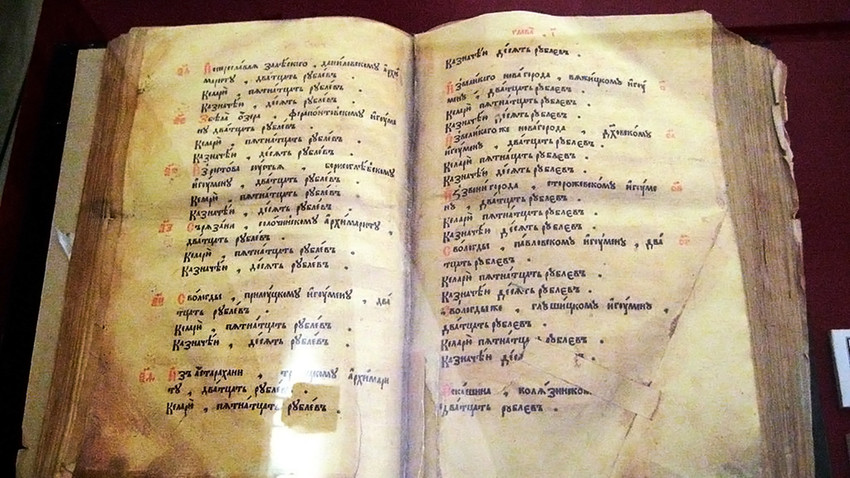 Ис переславля залѣского , даниловскому архи
мариту , дватцать рублевъ .
Келарю пятнатцать рублевъ .
Казначѣю , десять рублевъ .
Збѣла озера , ферапонтовскому игуме
ну дватцать рублевъ .
Келарю пятнатцать рублевъ .
Казначѣю , десять рублевъ .
Изростова устья , борисоглѣбскому
игумену , дватцать рублевъ .
Келарю , пятнатцать рублевъ .
Казначѣю , десять рублевъ .
Сърязана , солочинскому архимариту ,
дватцать рублевъ .
Келарю пятнатцать рублевъ .
Казначѣю , десять рублевъ .
Свологды , прилуцкому игумену , два
тцать рублевъ .
Келарю , пятнатцать рублевъ .
Казначѣю , десять рублевъ .
Изъ астарахани , архимари
ту , дватцать рублевъ
Келарю , пятнатцать рублевъ .
глава . і
Казначѣю десять рублевъ .
Извеликого нова города , вяжицкому игу
мену , дватцать рублевъ .
Келарю пятнатцать рублевъ .
Казначѣю десять рублевъ .
Извеликогоже новагорода , духовскому
игумену , дватцать рублевъ .
Келарю пятнатцать рублевъ .
Казначѣю десять рублевъ .
Изъ звени города , сторожевскому игуме
ну , дватцать рублевъ .
Келарю пятнатцать рублевъ .
Казначѣю десять рублевъ .
Свологды , павловскому игумену , два
тцать рублевъ .
Келарю пятнатцать рублевъ .
Казначѣю десять рублевъ .
Свологдыже , глушицкому игумену ,
дватцать рублевъ .
Келарю пятнатцать рублевъ .
Казначѣю
Искашина , колязинскому
дватцать рублевъ .